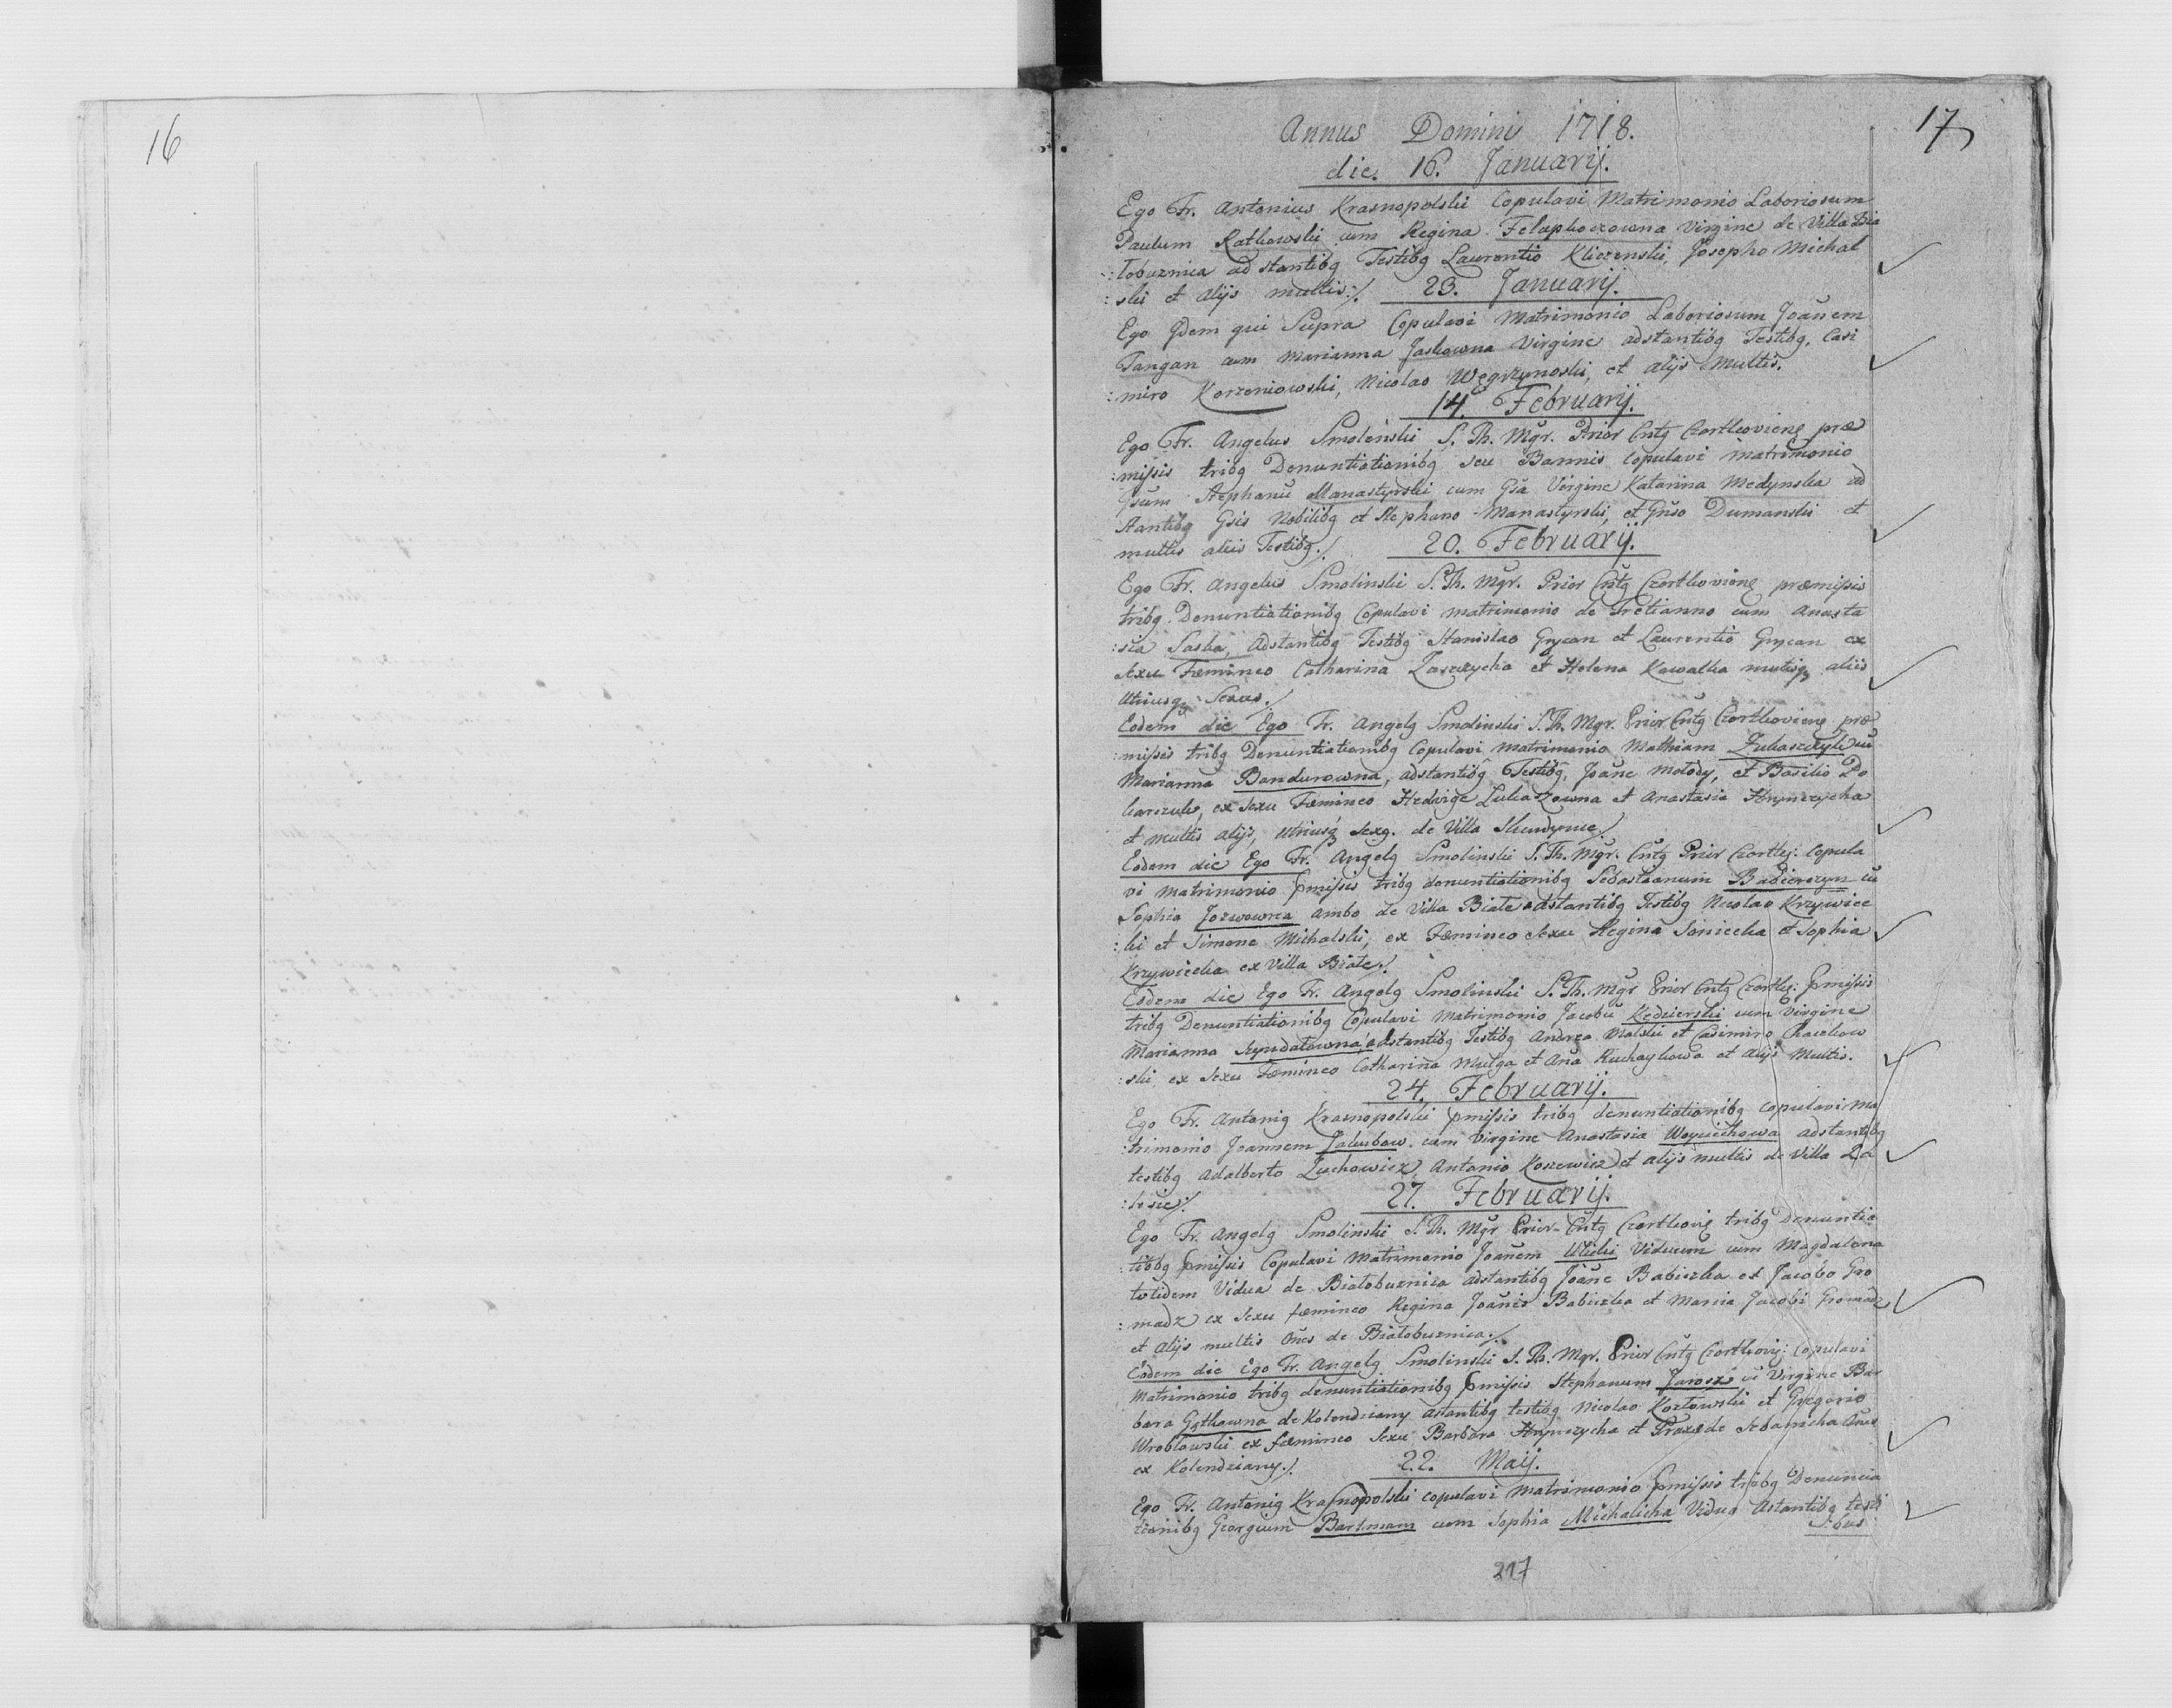 16
17
Annus Domini 1718.
die 16. Januarij.
Ego Fr. Antonius Krasnopolski Copulavi Matrimonio Laboriosum
Paulum Ratkowski cum Regina Felaphorowna Virgine de Villa Bia
:lobuznica adstantibꝯ Testibꝯ Laurentio Kliczenski, Josepho Michal
:ski et alijs multis./. 23. Januarij.
Ego Idem qui Supra Copulavi Matrimonio Laboriosum Joan̄em
Tangan cum Marianna Jaskowna Virgine adstantibꝯ Testibꝯ, Casi
:miro Korzeniowski, Nicolao Węgrzynoski, et alijs Multis.
14. Februarij.
Ego Fr. Angelus Smolenski S. Th. Mgr. Prior Cntꝯ Czortkovienꝭ præ
:missis tribꝯ Denuntiationibꝯ seu Bannis copulavi matrimonio
Gsum Stephanū Manastyrski cum Gsa Virgine Katarina Medynska ad
stantibꝯ Gsis Nobilibꝯ et Stephano Manastyrski, et Gnso Dumanski et
multis aliis Testibꝯ./. 20. Februarij.
Ego Fr. Angelus Smolinski S. Th. Mgr. Prior Cntꝯ Czortkovienꝭ præmissis
tribꝯ Denuntiationibꝯ Copulavi matrimonio de Tretianno cum Anasta
:sia Saska, Adstantibꝯ Testibꝯ Stanislao Grycan et Laurentio Grycan ex
sexu Fœmineo Catharina Zarczycha et Helena Kawalka multisqꝫ aliis
utriusqꝫ Sexus./
Eodem die Ego Fr. Angelꝯ Smolinski S. Th. Mgr. Prior Cntꝯ Czortkovienꝭ præ
:missis tribꝯ Denuntiationibꝯ Copulavi matrimonio Mathiam Lukaszczyk cū
Marianna Bandurowna, adstantibꝯ Testibꝯ, Joan̄e Mołody, et Basilio Do
karczuk, ex sexu Fœmineo Hedvige Lukaszowna et Anastasia Hrynczycha
et multis alijs, utriusqꝫ sexꝯ. de Villa Skurdynie./
Eodem die Ego Fr. Angelꝯ Smolinski S. Th. Mgr. Cntꝯ Prior Czortkꝭ: Copula
vi matrimonio pmissis tribꝯ denuntiationibꝯ Sebastianum Babierczyn cū
Sophia Jozwowna ambo de Villa Biale adstantibꝯ Testibꝯ Nicolao Krzywice
:ki et Simone Michalski, ex Fœmineo sexu Regina Sanicka et Sophia
Krzywicka ex Villa Biale./.
Eodem die Ego Fr. Angelꝯ Smolinski S. Th. Mgr Prior Cntꝯ Czortkꝭ: pmissis
tribꝯ Denuntiationibꝯ Copulavi Matrimonio Jacobū Kędzierski cum Virgine
Marianna Szyndałowna adstantibꝯ Testibꝯ Andrea Malski et Casimiro Chaukow
:ski, ex sexu Fœmineo Catharina Mulga et An̄a Kuchaykowa et alijs Multis.
24. Februarij.
Ego Fr. Antonig Krasnopolski pmissis tribꝯ denuntiationibꝯ copulavi Ma
:trimonio Joannem Jakubow cum Virgine Anastasia Woyciechowa adstantibꝯ
testibꝯ Adalberto Zuchowicz, Antonio Koszewicz et alijs multis de Villa Za
:lesie./.
27. Februarij.
Ego Fr. Angelꝯ Smolinski S. Th. Mgr Prior Cntꝯ Czortkoviꝭ tribꝯ Denuntia
:tibꝯ pmissis Copulavi Matrimonio Joan̄em Ulicki Viduum cum Magdalena
totidem Vidua de Białobuznica adstantibꝯ Joan̄e Babiczka et Jacobo Gro
:madz ex sexu fœmineo Regina Joan̄is Babiczka et Marina Jacobi Gromadz
et alijs multis Om̄es de Białobuznica./.
Eodem die Ego Fr. Angelꝯ Smolinski S. Th. Mgr. Prior Cntꝯ Czortkovij: Copulavi
Matrimonio tribꝯ denuntiationibꝯ pmissis Stephanum Jarosz cū Virgine Bar
bara Gstkowna de Kolendziany astantibꝯ testibꝯ Nicolao Kozłowski et Gregorio
Wrobłowski ex fœmineo sexu Barbara Hrynczycha et Praxede Sebanicha Om̄es
ex Kolendziany./. 22. Maij.
Ego Fr. Antonig Krasnopolski copulavi Matrimonio pmissis tribꝯ Denuncia
tionibꝯ Georgium Bartmann cum Sophia Michalicha Vidua Astantibꝯ testi
:bus
217